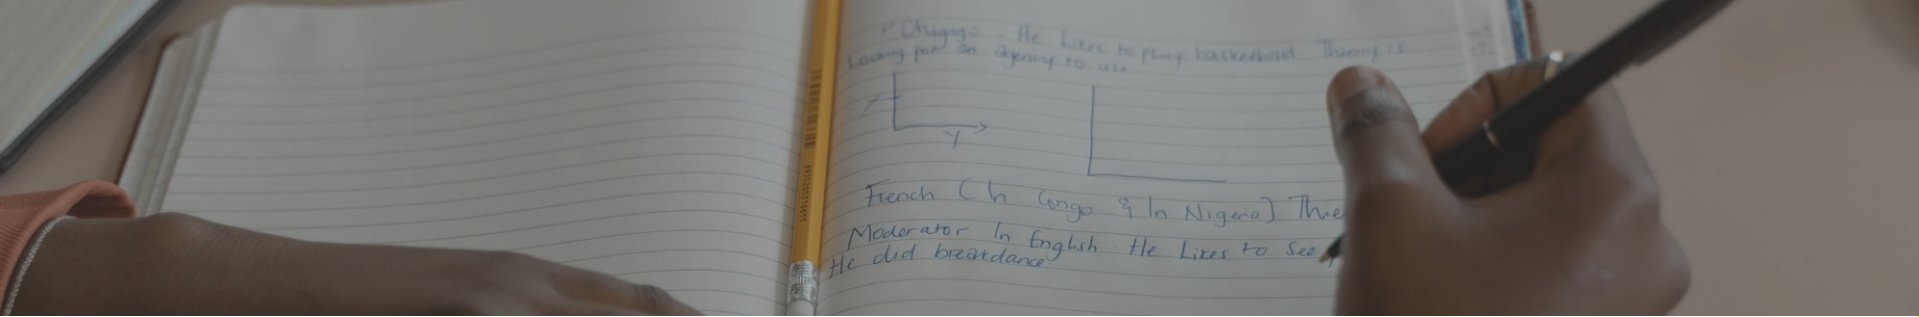 He Likes to play basketball Thierry is
Looking for an agency to use
Y
French (In Congo & In Nigeria) Thie
Moderator In English. He Likes to See
He did breakdance